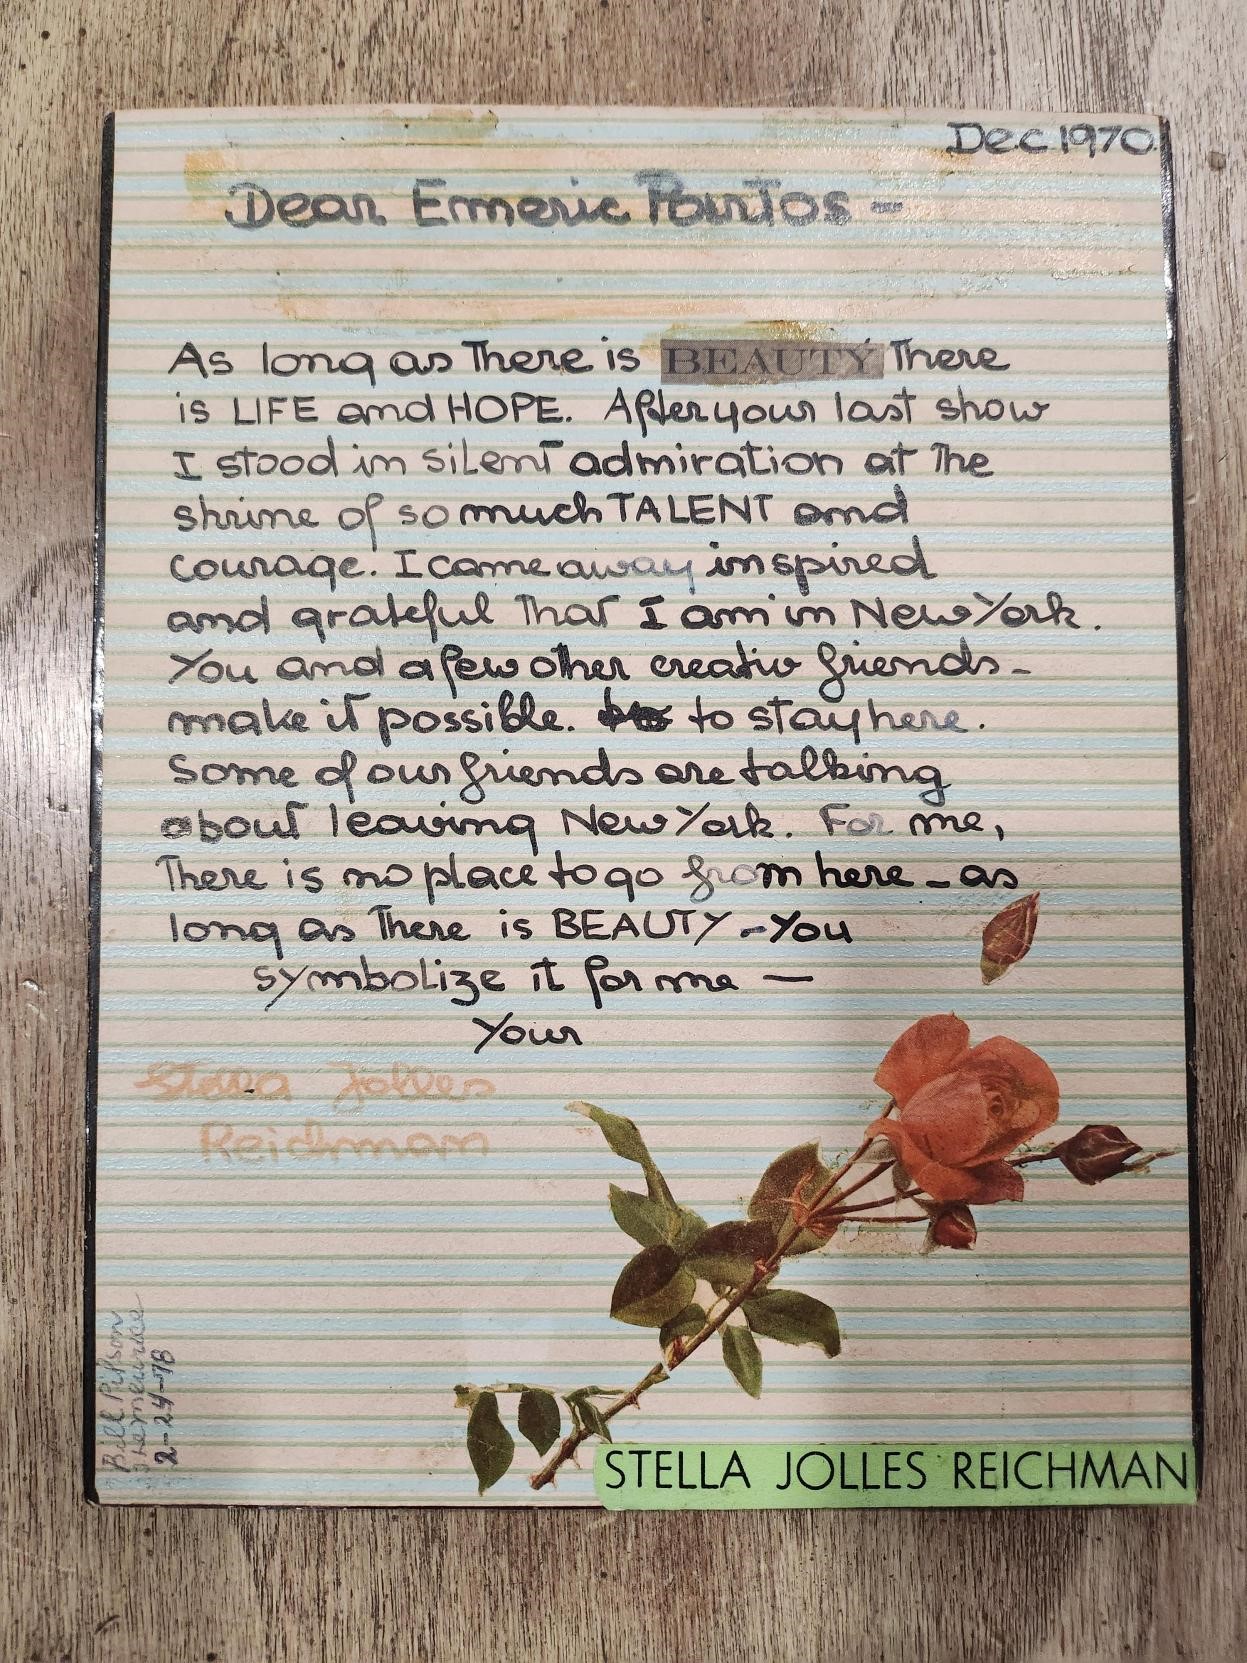 Dec. 1970.
Dear Emeric Partos -
As long as There is BEAUTY There
is LIFE and HOPE. After your last show
I stood in silent admiration at The
shrine of so much TALENT and
courage. I came away inspired
and grateful That I am in New York.
You and a few other creativ friends -
make it possible. to stay here.
Some of our friends are talking
about leaving New York. For me,
There is no place to go from here - as
long as There is BEAUTY - You
symbolize it for me —
Your
Stella Jolles
Reichman
Bill
2-24-78
STELLA JOLLES REICHMAN